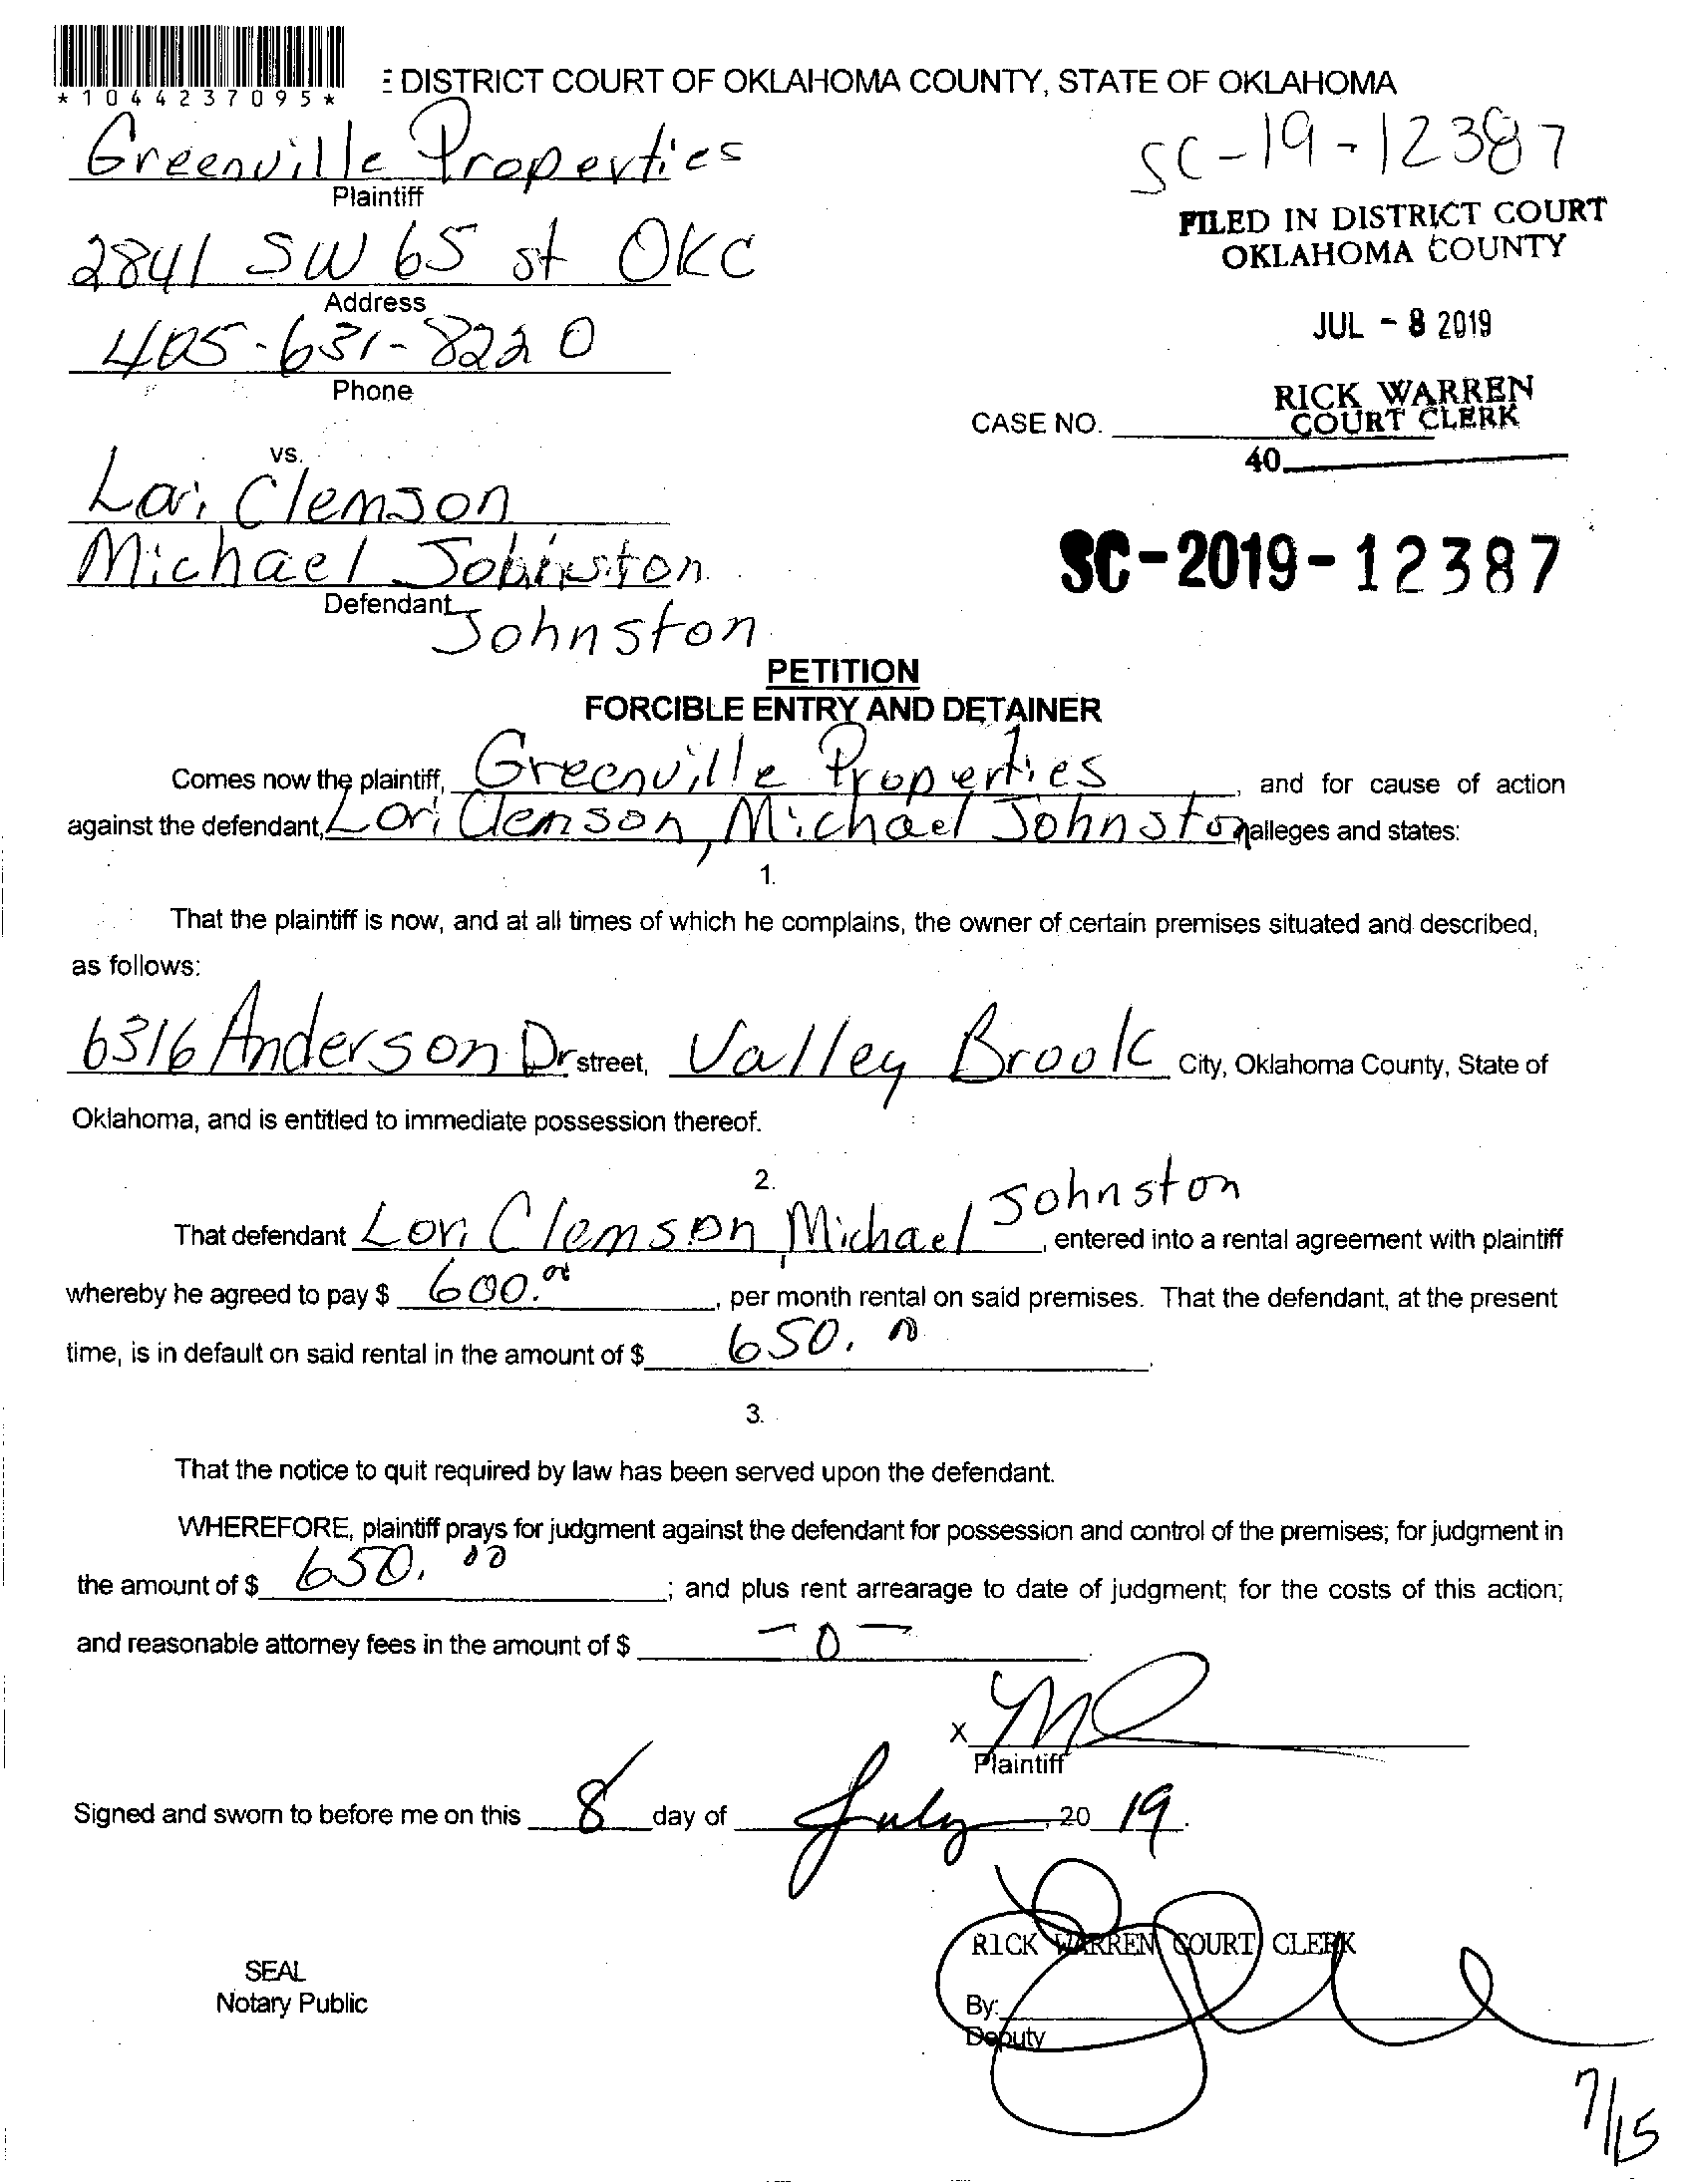 *1044237095*
E DISTRICT COURT OF OKLAHOMA COUNTY, STATE OF OKLAHOMA
Greenville Properties
SC-19-12387
Plaintiff
FILED IN DISTRICT COURT
OKLAHOMA COUNTY
2841 SW 65 st OKC
Address
JUL - 8 2019
405-631-8220
Phone
RICK WARREN
COURT CLERK
CASE NO.
40
vs.
Lori Clemson
Michael Johnston
SC-2019-12387
Defendant
Johnston
PETITION
FORCIBLE ENTRY AND DETAINER
Comes now the plaintiff, Greenville Properties, and for cause of action
against the defendant, Lori Clemson, Michael Johnston alleges and states:
1.
That the plaintiff is now, and at all times of which he complains, the owner of certain premises situated and described,
as follows:
6316 Anderson Dr street, Valley Brook City, Oklahoma County, State of
Oklahoma, and is entitled to immediate possession thereof.
2.
That defendant Lori Clemson, Michael Johnston, entered into a rental agreement with plaintiff
whereby he agreed to pay $ 600.00, per month rental on said premises. That the defendant, at the present
time, is in default on said rental in the amount of $ 650.
3.
That the notice to quit required by law has been served upon the defendant.
WHEREFORE, plaintiff prays for judgment against the defendant for possession and control of the premises; for judgment in
the amount of $ 650.00; and plus rent arrearage to date of judgment; for the costs of this action;
and reasonable attorney fees in the amount of $ -0-
X
Plaintiff
Signed and sworn to before me on this 8 day of July, 20 19.
RICK WARREN COURT CLERK
SEAL
Notary Public
By:
Deputy
7/15